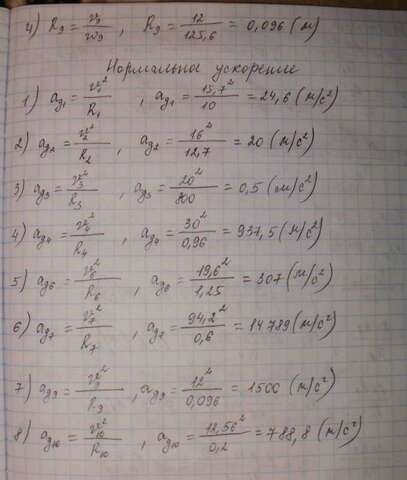 4) R₉ = v₉/ω₉ , R₉ = 12/125,6 = 0,096 (м)
Нормальное ускорение
1) aд₁ = v₁²/R₁ , aд₁ = 15,7²/10 = 24,6 (м/с²)
2) aд₂ = v₂²/R₂ , aд₂ = 16²/12,7 = 20 (м/с²)
3) aд₃ = v₃²/R₃ , aд₃ = 20²/800 = 0,5 (м/с²)
4) aд₄ = v₄²/R₄ , aд₄ = 30²/0,96 = 937,5 (м/с²)
5) aд₆ = v₆²/R₆ , aд₆ = 19,6²/1,25 = 307 (м/с²)
6) aд₇ = v₇²/R₇ , aд₇ = 94,2²/0,6 = 14789 (м/с²)
7) aд₉ = v₉²/R₉ , aд₉ = 12²/0,096 = 1500 (м/с²)
8) aд₁₀ = v₁₀²/R₁₀ , aд₁₀ = 12,56²/0,2 = 788,8 (м/с²)